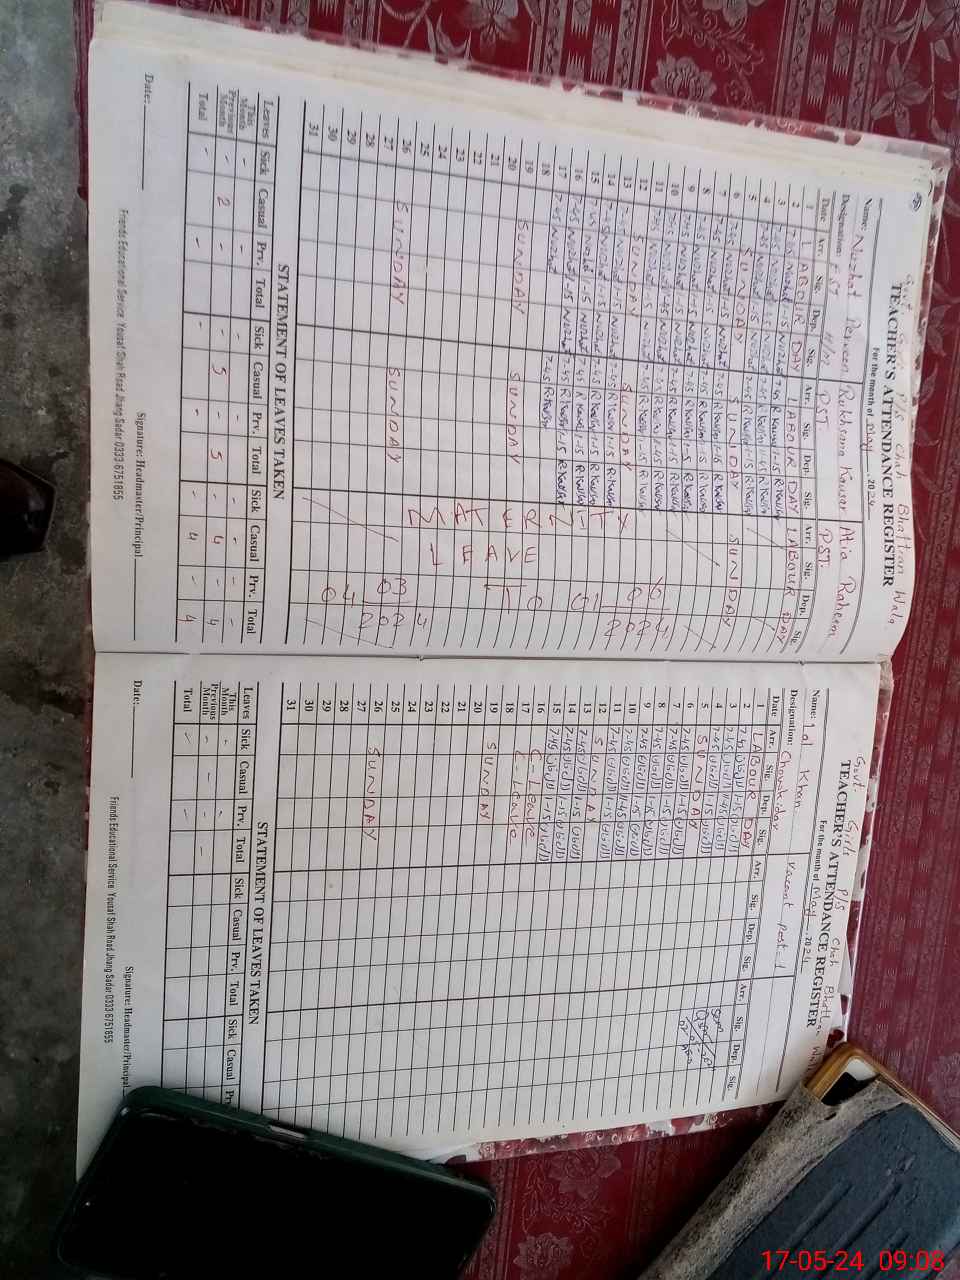 Govt. Girls P/S Chah Bhattian Wala
TEACHER'S ATTENDANCE REGISTER
For the month of May, 2024
Name: Nuzhat Perveen Rukhsana Kausar Atia Raheem
Designation: EST H/M PST. PST.
Date Arr. Sig. Dep. Sig. Arr. Sig. Dep. Sig. Arr. Sig. Dep. Sig.
1 LABOUR DAY LABOUR DAY LABOUR DAY
2 7-45 Nuzhat 1-15 Nuzhat 7-45 R Kausar 1-15 R Kausar
3 7-45 Nuzhat 7-45 R Kausar R Kausar
4 7-45 Nuzhat 1-15 Nuzhat 7-45 R Kausar 1-15 R Kausar
5 SUNDAY SUNDAY SUNDAY
6 7-45 Nuzhat 1-15 Nuzhat 7-45 R Kausar 1-15 R Kausar
7 7-45 Nuzhat 1-15 Nuzhat 7-45 R Kausar 1-15 R Kausar
8 7-45 Nuzhat 1-15 Nuzhat 7-45 R Kausar 1-15 R Kausar
9 7-45 Nuzhat 1-15 Nuzhat 7-45 R Kausar 1-15 R Kausar
10 7-45 Nuzhat Nuzhat 7-45 R Kausar R Kausar
11 7-45 Nuzhat 1-15 Nuzhat 7-45 R Kausar 1-15 R Kausar
12 SUNDAY SUNDAY
13 7-45 Nuzhat 1-15 Nuzhat 7-45 R Kausar 1-15 R Kausar
14 7-45 Nuzhat 1-15 Nuzhat 7-45 R Kausar 1-15 R Kausar
15 7-45 Nuzhat 1-15 Nuzhat 7-45 R Kausar 1-15 R Kausar
16 7-45 Nuzhat 1-15 Nuzhat 7-45 R Kausar 1-15 R Kausar
17 7-45 Nuzhat 7-45 R Kausar
18
19 SUNDAY SUNDAY
20
21
22
23
24
25
26 SUNDAY SUNDAY
27
28
29
30
31
MATERNITY
LEAVE
01 06 2024
TO
04 03 2024
STATEMENT OF LEAVES TAKEN
Leaves Sick Casual Prv. Total Sick Casual Prv. Total Sick Casual Prv. Total
This Month - - - - - - -
Previous Month - 2 - - 5 - 5 - 4 - 4
Total - - - - - 4 - 4
Date: Signature: Headmaster/Principal
Friends Educational Service Yousaf Shah Road Jhang Sadar 0333-6751855
Govt. Girls P/S Chah Bhattian Wala
TEACHER'S ATTENDANCE REGISTER
For the month of May, 2024
Name: Lal Khan Vacant Post-1
Designation: Chowkidar
Date Arr. Sig. Dep. Sig. Arr. Sig. Dep. Sig. Arr. Sig. Dep. Sig.
1 LABOUR DAY
2 7-45 1-15
3 7-45
4 7-45 1-15
5 SUNDAY
6 7-45 1-15
7 7-45 1-15
8 7-45 1-15
9 7-45 1-15
10 7-45
11 7-45 1-15
12 SUNDAY
13 7-45 1-15
14 7-45 1-15
15 7-45 1-15
16
17 C-Leave
18 C-Leave
19 SUNDAY
20
21
22
23
24
25
26 SUNDAY
27
28
29
30
31
STATEMENT OF LEAVES TAKEN
Leaves Sick Casual Prv. Total Sick Casual Prv. Total Sick Casual
This Month
Previous Month
Total
Date: Signature: Headmaster/Principal
Friends Educational Service Yousaf Shah Road Jhang Sadar 0333-6751855
17-05-24 09:08